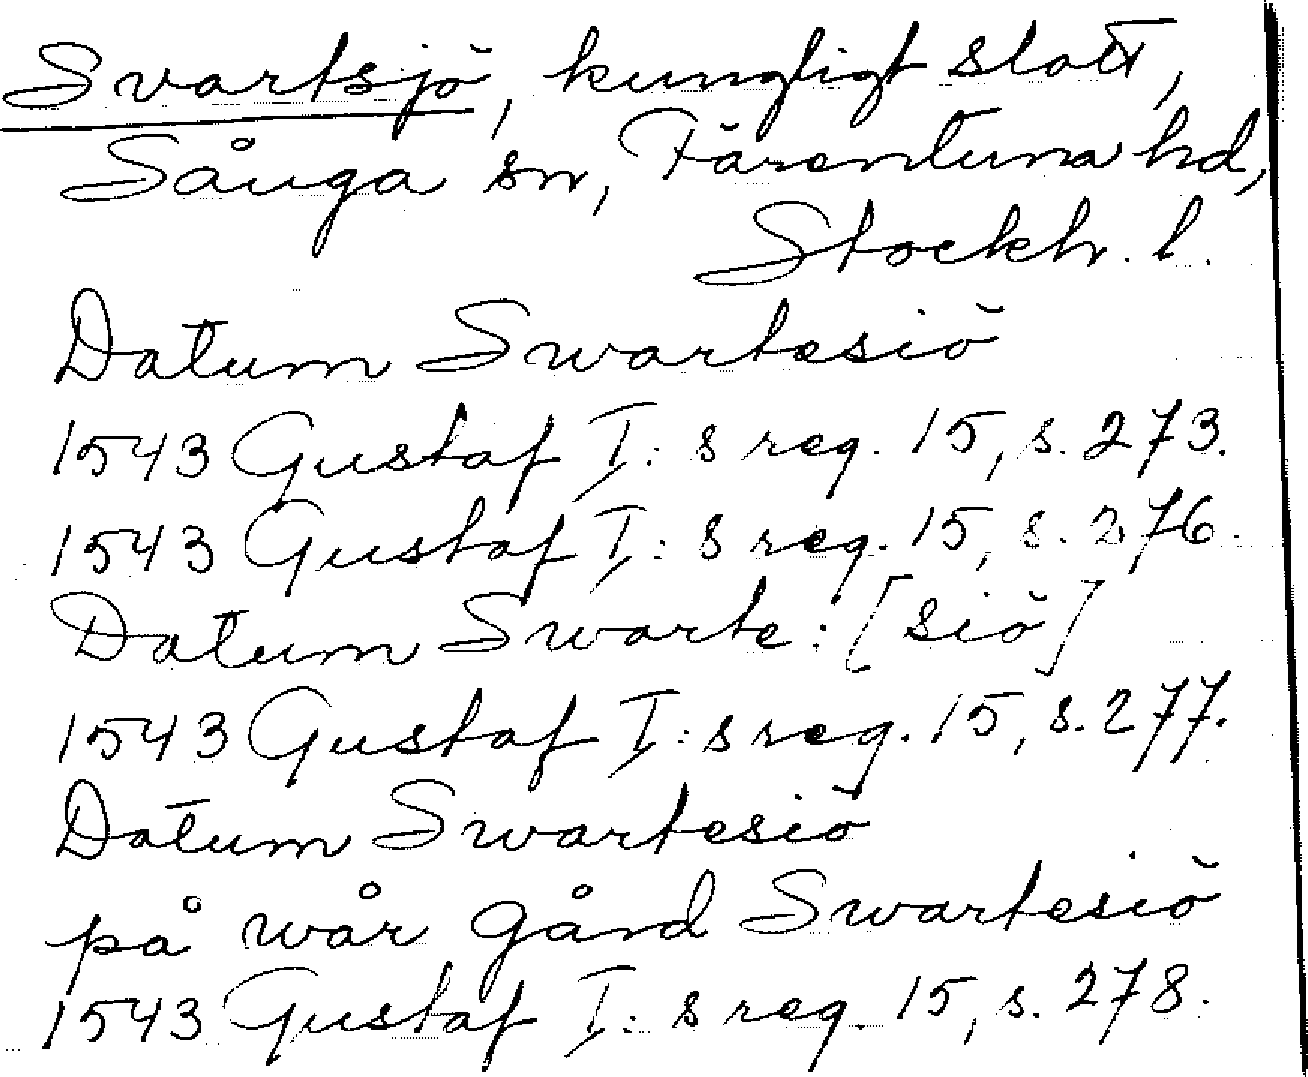 Svartsjö, kungligt slott,
Sånga sn, Färentuna hd,
Stockh. l.
Datum Swartesiö
1543 Gustaf I: s reg. 15, s. 273.
1543 Gustaf I: s reg. 15, s. 276.
Datum Swarte: [siö]
1543 Gustaf I: s reg. 15, s. 277.
Datum Swartesiö
på wår gård Swartesiö
1543 Gustaf I: s reg. 15, s. 278.